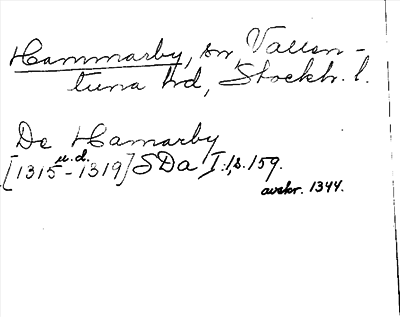 Hammarby, sn, Vallen-
tuna hd, Stockh. l.
De Hamarby
u.d.
[1315-1319] SDa I:1, s. 159.
avskr. 1344.